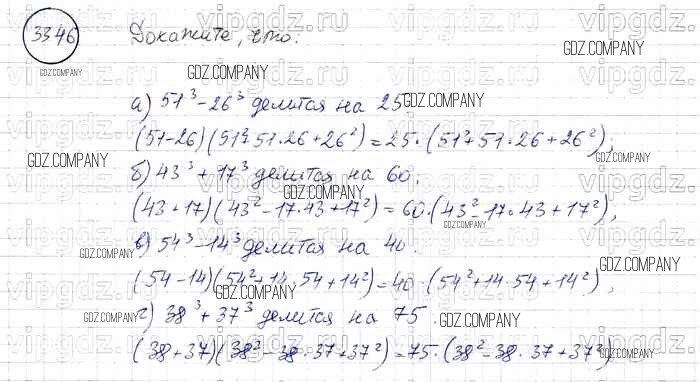 33.46 Докажите, что:
а) 51³ - 26³ делится на 25
(51-26)(51²+51·26+26²)=25·(51²+51·26+26²),
б) 43³ + 17³ делится на 60.
(43+17)(43²-17·43+17²)=60·(43²-17·43+17²),
в) 54³-14³ делится на 40.
(54-14)(54²+14·54+14²)=40·(54²+14·54+14²),
г) 38³+37³ делится на 75.
(38+37)(38²-38·37+37²)=75·(38²-38·37+37²)
vipgdz.ru
GDZ.COMPANY